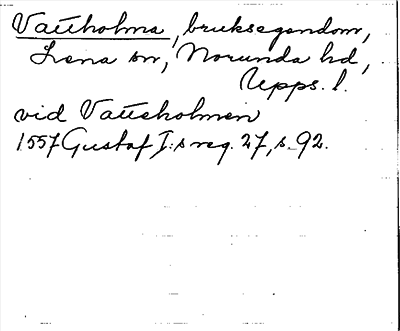 Vattholma, bruksegendom,
Lena sn, Norunda hd,
Upps. l.
vid Vattholmen
1557 Gustaf I:s reg. 27, s. 92.